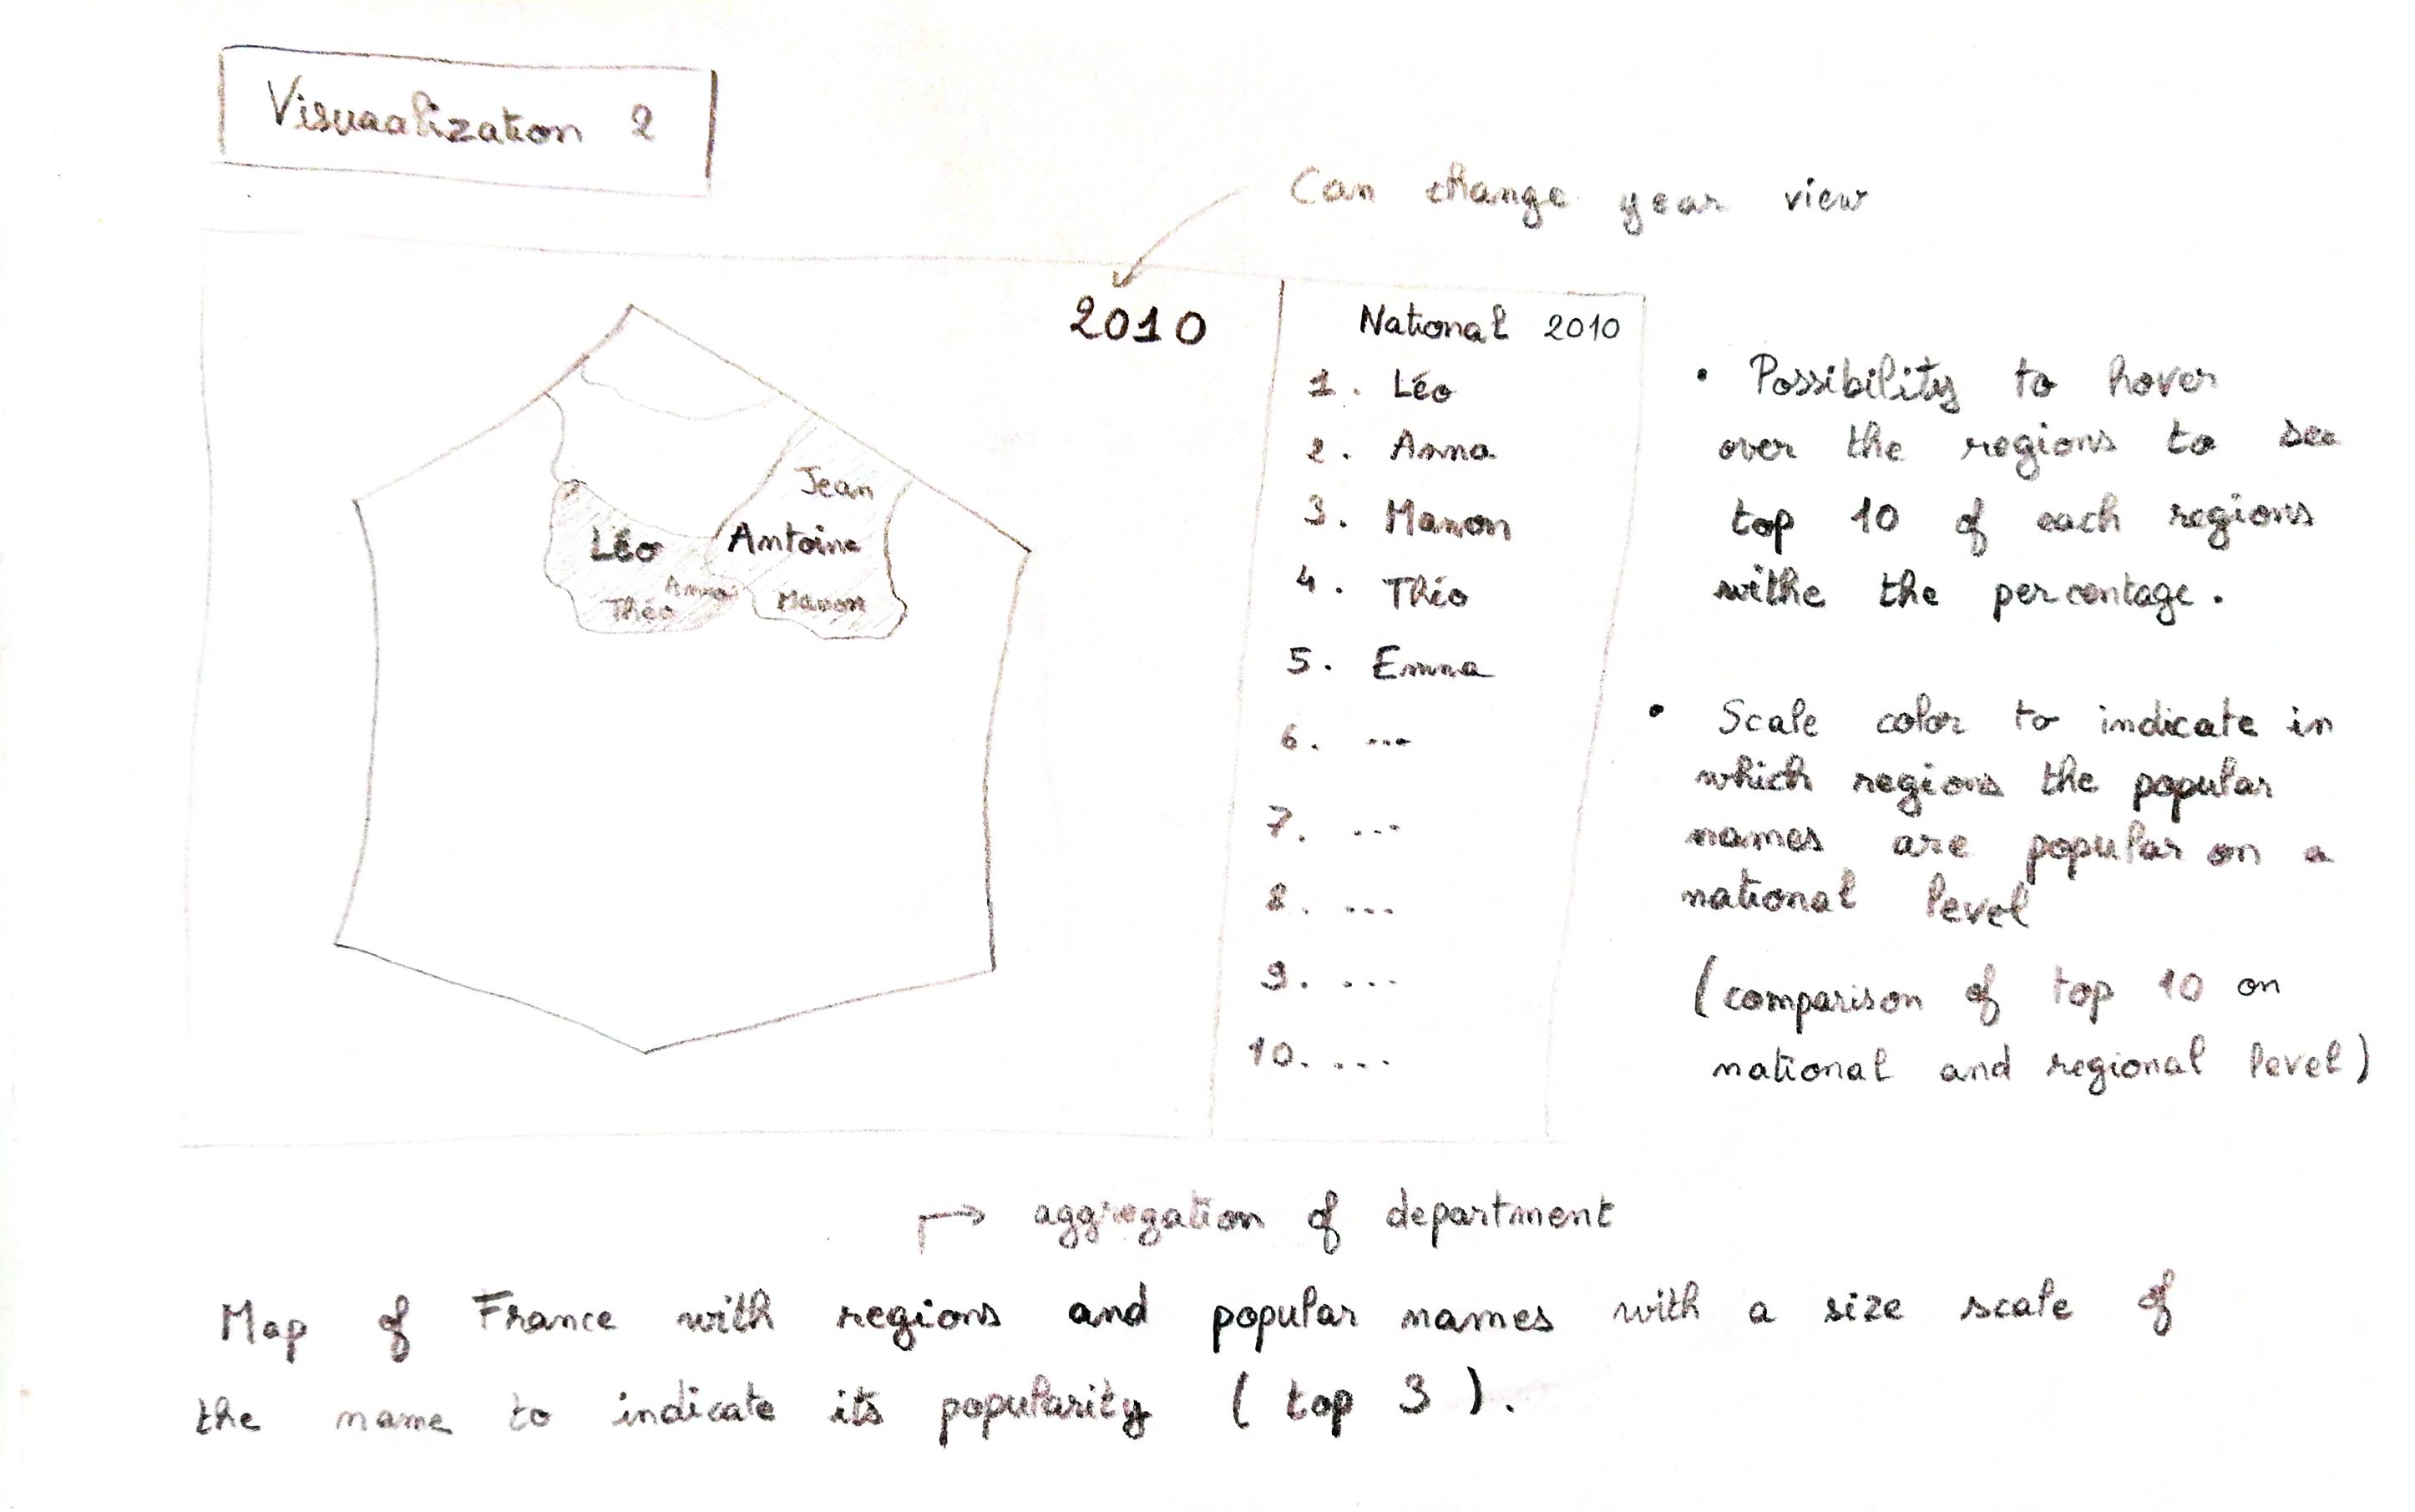 Visuaalization 2
Can change year view
2010
Jean
Léo
Antoine
Anna
Théo
Manon
National 2010
1. Léo
2. Anna
3. Manon
4. Théo
5. Emma
6. ...
7. ...
8. ...
9. ....
10. ....
• Possibility to hover
over the regions to see
top 10 of each regions
withe the percentage.
• Scale color to indicate in
which regions the popular
names are popular on a
national level
(comparison of top 10 on
national and regional level)
→ aggregation of department
Map of France with regions and popular names with a size scale of
the name to indicate its popularity (top 3).